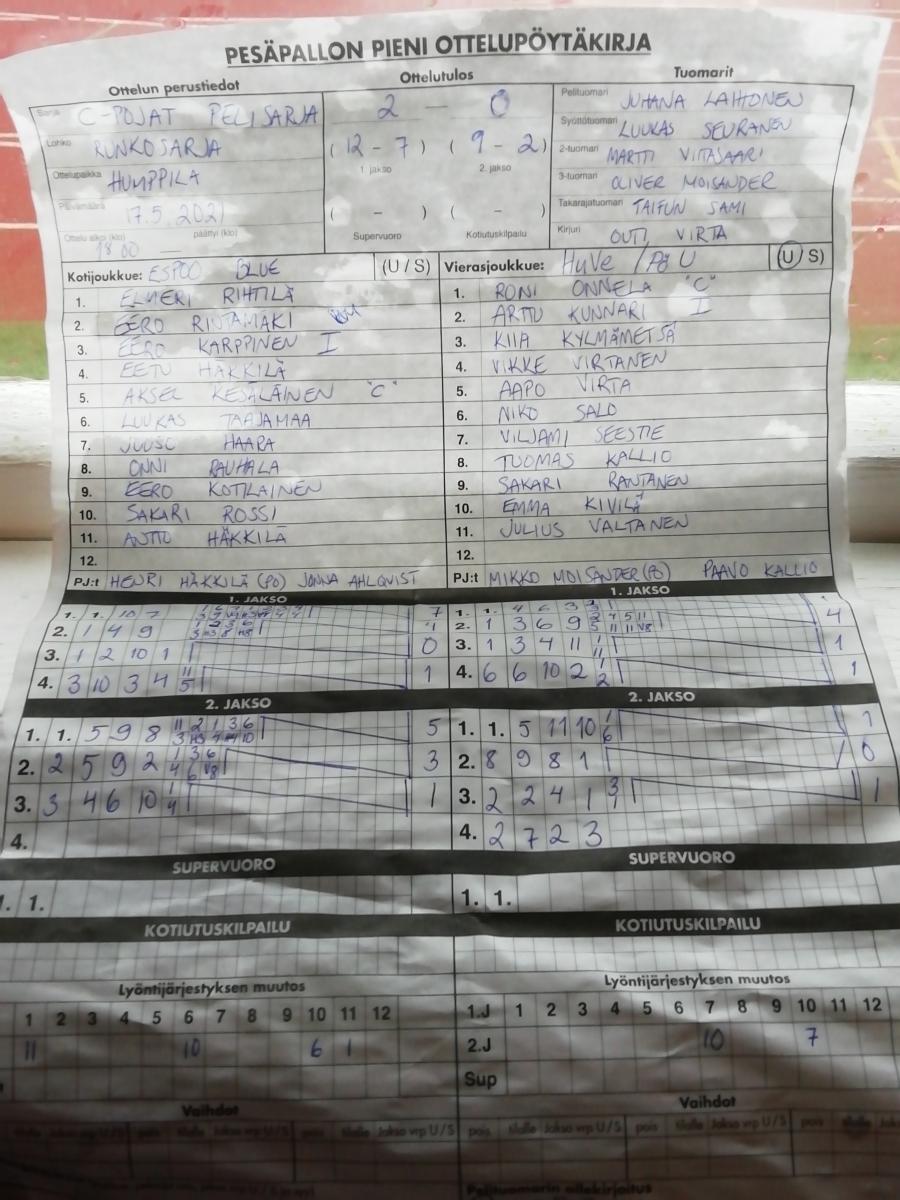 PESÄPALLON PIENI OTTELUPÖYTÄKIRJA
Ottelun perustiedot
Ottelutulos
Tuomarit
Sarja C-POJAT PELISARJA
Lohko RUNKOSARJA
Ottelupaikka HUMPPILA
Päivämäärä 17.5.2021
Ottelu alkoi (klo) 18 00 päättyi (klo)
2 — 0
( 12 - 7 ) ( 9 - 2 )
1. jakso 2. jakso
( - ) ( - )
Supervuoro Kotiutuskilpailu
Pelituomari JUHANA LAIHONEN
Syöttötuomari LUUKAS SEURANEN
2-tuomari MARTTI VIITASAARI
3-tuomari OLIVER MOISANDER
Takarajatuomari TAIFUN SAMI
Kirjuri OUTI VIRTA
Kotijoukkue: ESPOO BLUE (U / S)
1. ELMERI RIHTILÄ
2. EERO RINTAMÄKI
3. EERO KARPPINEN I
4. EETU HÄKKILÄ
5. AKSEL KESÄLÄINEN "C"
6. LUUKAS TAAJAMAA
7. JUUSO HAARA
8. ONNI RAUHALA
9. EERO KOTILAINEN
10. SAKARI ROSSI
11. ANTTU HÄKKILÄ
12.
PJ:t HENRI HÄKKILÄ (PÖ) JONNA AHLQVIST
Vierasjoukkue: HyVe / PöU (U / S)
1. RONI ONNELA "C"
2. ARTTU KUNNARI I
3. KIIA KYLMÄMETSÄ
4. VIKKE VIRTANEN
5. AAPO VIRTA
6. NIKO SALO
7. VILJAMI SEESTIE
8. TUOMAS KALLIO
9. SAKARI RANTANEN
10. EMMA KIVILÄ
11. JULIUS VALTANEN
12.
PJ:t MIKKO MOISANDER (PÖ) PAAVO KALLIO
1. JAKSO
1. 1. 10 7 7
2. 1 4 9 4
3. 1 2 10 1 0
4. 3 10 3 4 11 5 1
2. JAKSO
1. 1. 5 9 8 5
2. 2 5 9 2 3
3. 3 4 6 10 1 4 1
4.
SUPERVUORO
1. 1.
KOTIUTUSKILPAILU
Lyöntijärjestyksen muutos
1 2 3 4 5 6 7 8 9 10 11 12
11 10 6 1
Vaihdot
tilalle Jakso vrp U / S pois tilalle Jakso vrp U / S
1. JAKSO
1. 1. 4 6 3 4
2. 1 3 6 9
3. 1 3 4 11 1 11 1
4. 6 6 10 2 1 2 1
2. JAKSO
1. 1. 5 11 10 1 6 1
2. 8 9 8 1 0
3. 2 2 4 1 3 1 1
4. 2 7 2 3
SUPERVUORO
1. 1.
KOTIUTUSKILPAILU
Lyöntijärjestyksen muutos
1.J 1 2 3 4 5 6 7 8 9 10 11 12
2.J 10 7
Sup
Vaihdot
pois tilalle Jakso vrp U / S pois tilalle Jakso vrp U / S
Pelituomarin allekirjoitus